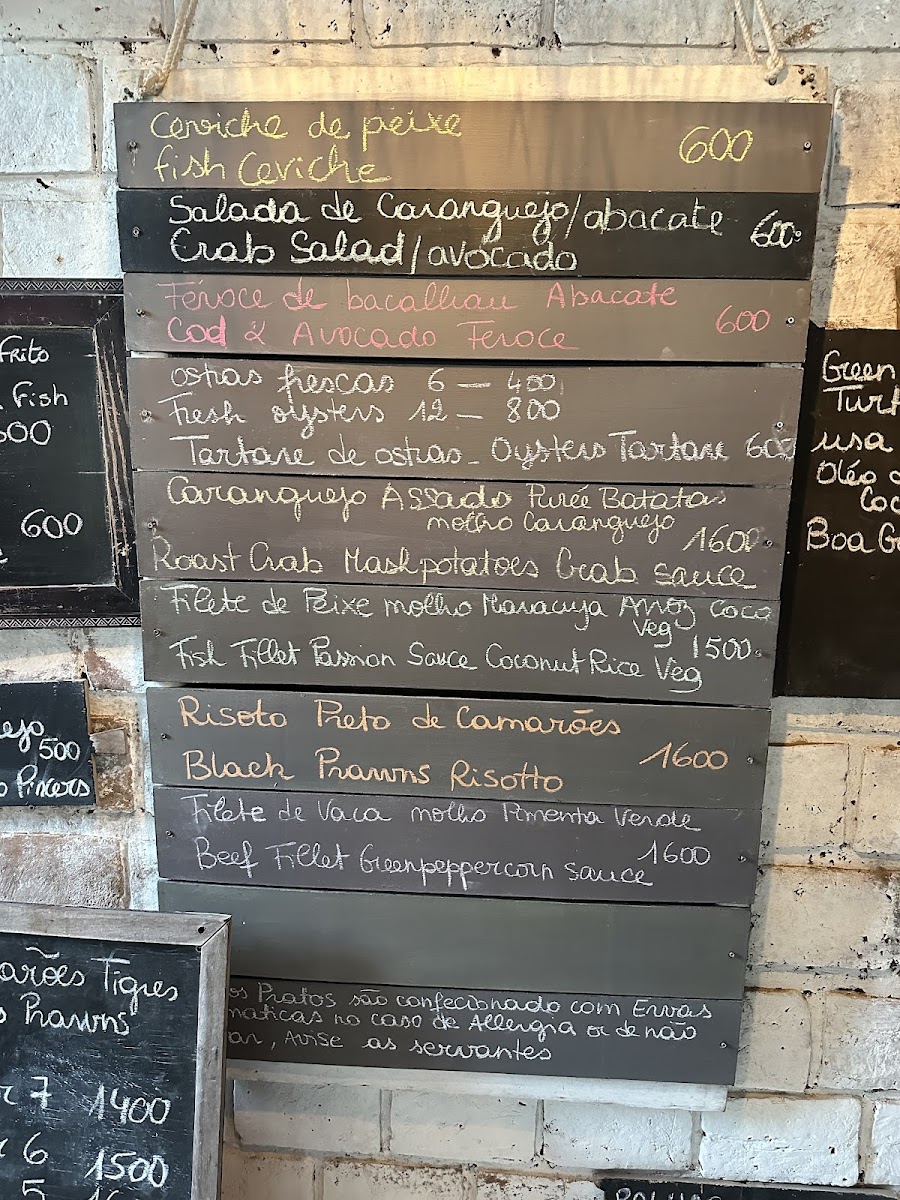 Ceviche de peixe
fish Ceviche 600
Salada de Caranguejo/abacate
Crab Salad/avocado 600
Féroce de bacalhau Abacate
Cod & Avocado Feroce 600
ostras frescas 6 — 400
Fresh oysters 12 — 800
Tartare de ostras - Oysters Tartare 600
Caranguejo Assado Purée Batatas
molho Caranguejo
1600
Roast Crab Mashpotatoes Crab sauce
Filete de Peixe molho Maracuja Arroz coco
Veg
1500
Fish Fillet Passion Sauce Coconut Rice Veg
Risoto Preto de Camarões
Black Prawns Risotto 1600
Filete de Vaca molho Pimenta Verde
1600
Beef Fillet Greenpeppercorn sauce
os Pratos são confecionado com Ervas
maticas no caso de Allergia or de não
ar, Avise as servantes
Frito
Fish
600
ejo
500
Pincers
arões Tigres
s Prawns
7 1400
6 1500
5
Green
Turt
usa
Oléo
Coc
Boa G